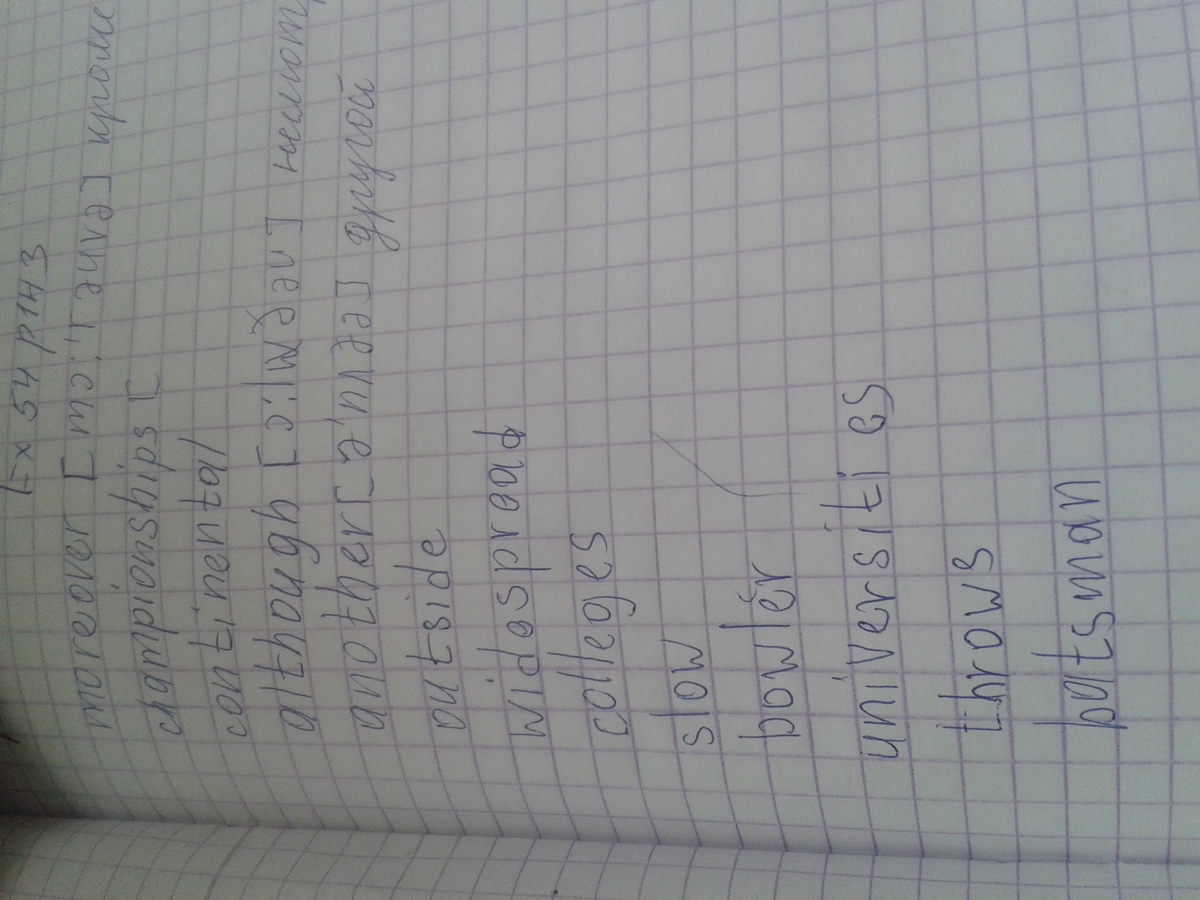 Ex 54 p143
moreover [mɔ:'rəuvə] кроме
championships [
continental
although [ɔ:lw'ðəu]
another [ə'nʌðə] другой
outside
widespread
colleges
slow
bowler
universities
throws
batsman